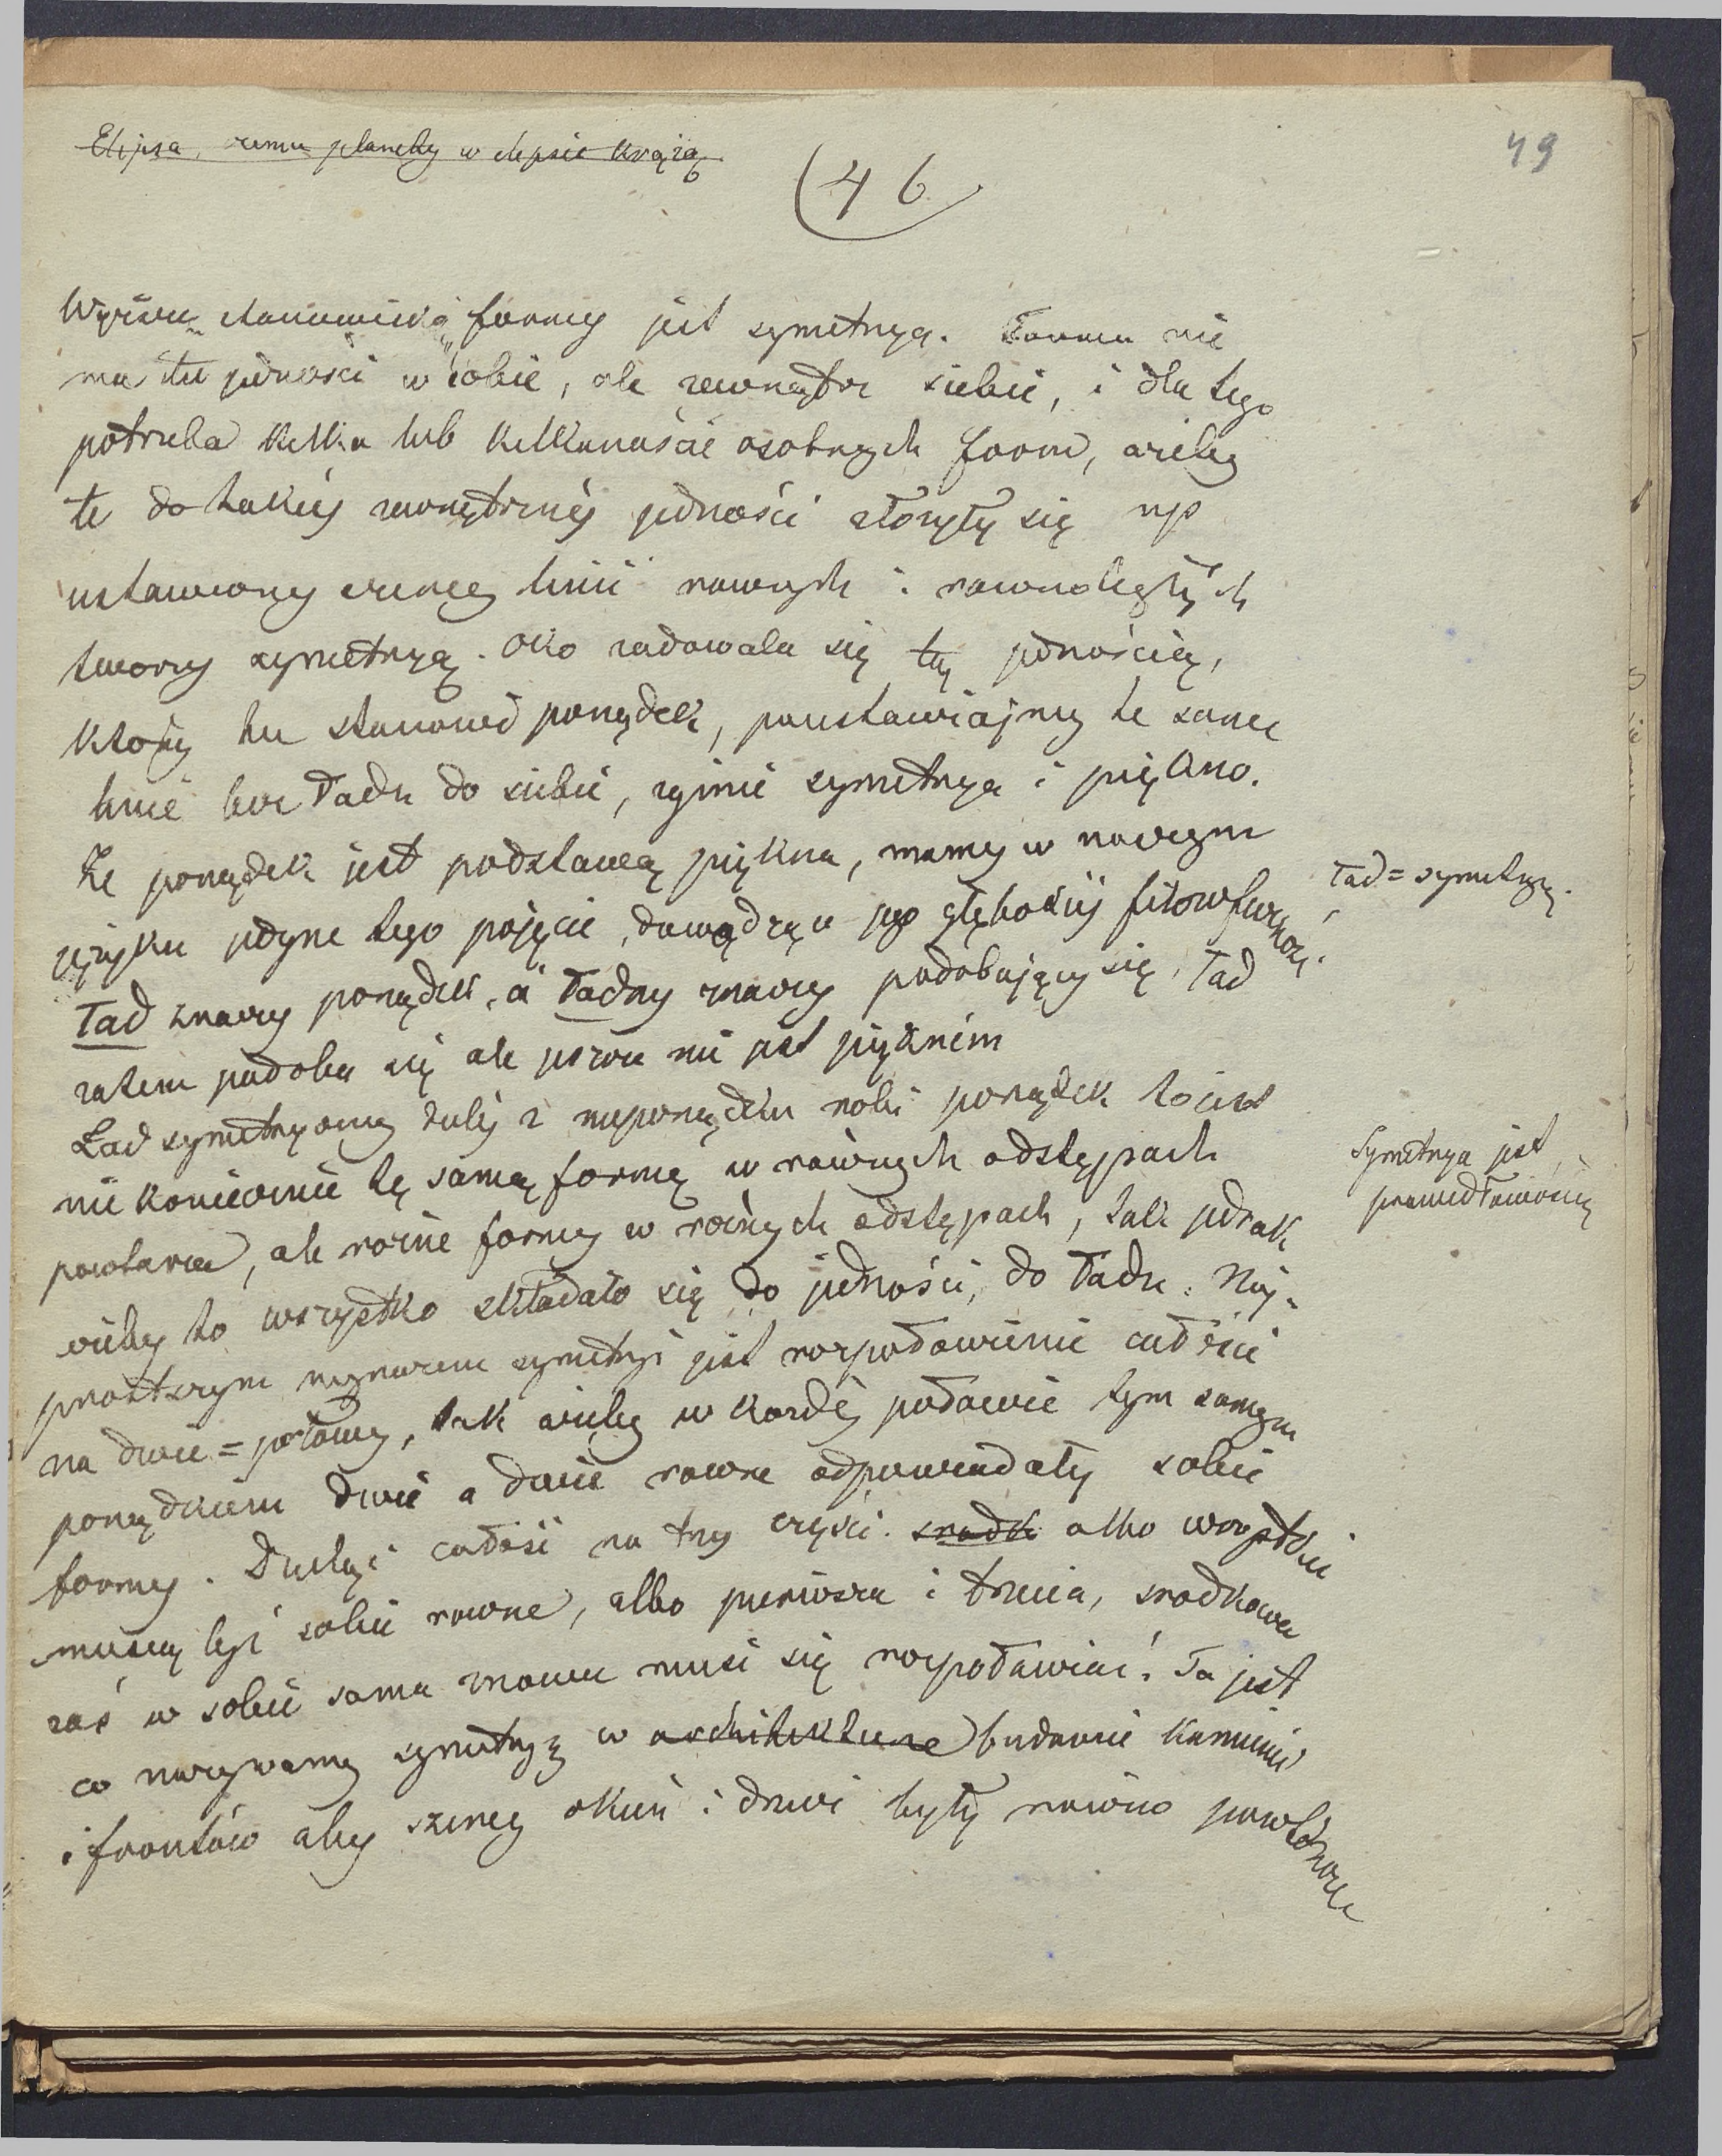 Elipsa, czemu planety w elipsie krążą
49
(46
Wyższą stanowiską formy jest symetrya. Forma nie
ma tu jedności w sobie, ale zewnątrz siebie, i dla tego
potrzeba kilka lub kilkanaście osobnych form, ażeby
te do takiéj zewnętrznéj jedności złożyły się np
ustawiony szereg linii rownych i rownoległych
tworzy symetryą. Oko radowała się tą jednością,
którą tu stanowi porządek, poustawiajmy te same
linie bez ładu do siebie, zginie symetrya i piękno.
Że porządek jest podstawą piękna, mamy w naszym
języku jedyne tego pojęcie, dowodzące jego głębokiéj filozoficzności.
Ład znaczy porządek, a Ładny znaczy podobający się, Ład
zatem podoba się ale jeszcze nie jest pięknem
Ład = symetryą.
Ład symetryczny daléj z nieporządku robi porządek tojest
nie koniecznie tę samą formę w równych odstępach
powtarza, ale rożne formy w rożnych odstępach, tak jednak
żeby to wszystko składało się do jedności, do ładu. Naj-
Symetrya jest
prawidłowością
prostszym wyrazem symetryi jest rozpołowienie całości
na dwie = połowy, tak ażeby w każdéj połowie tym samym
porządkiem dwie a dwie rowne odpowiadały sobie
formy. Dzieląc całość na trzy części. srodk albo wszystkie
muszą być sobie rowne, albo pierwsza i trzecia, srodkowa
zaś w sobie sama znowu musi się rozpoławiać. To jest
co nazywamy symetryą w architekturze budowie kamienic
i frontów aby szereg okien i drzwi były rowno